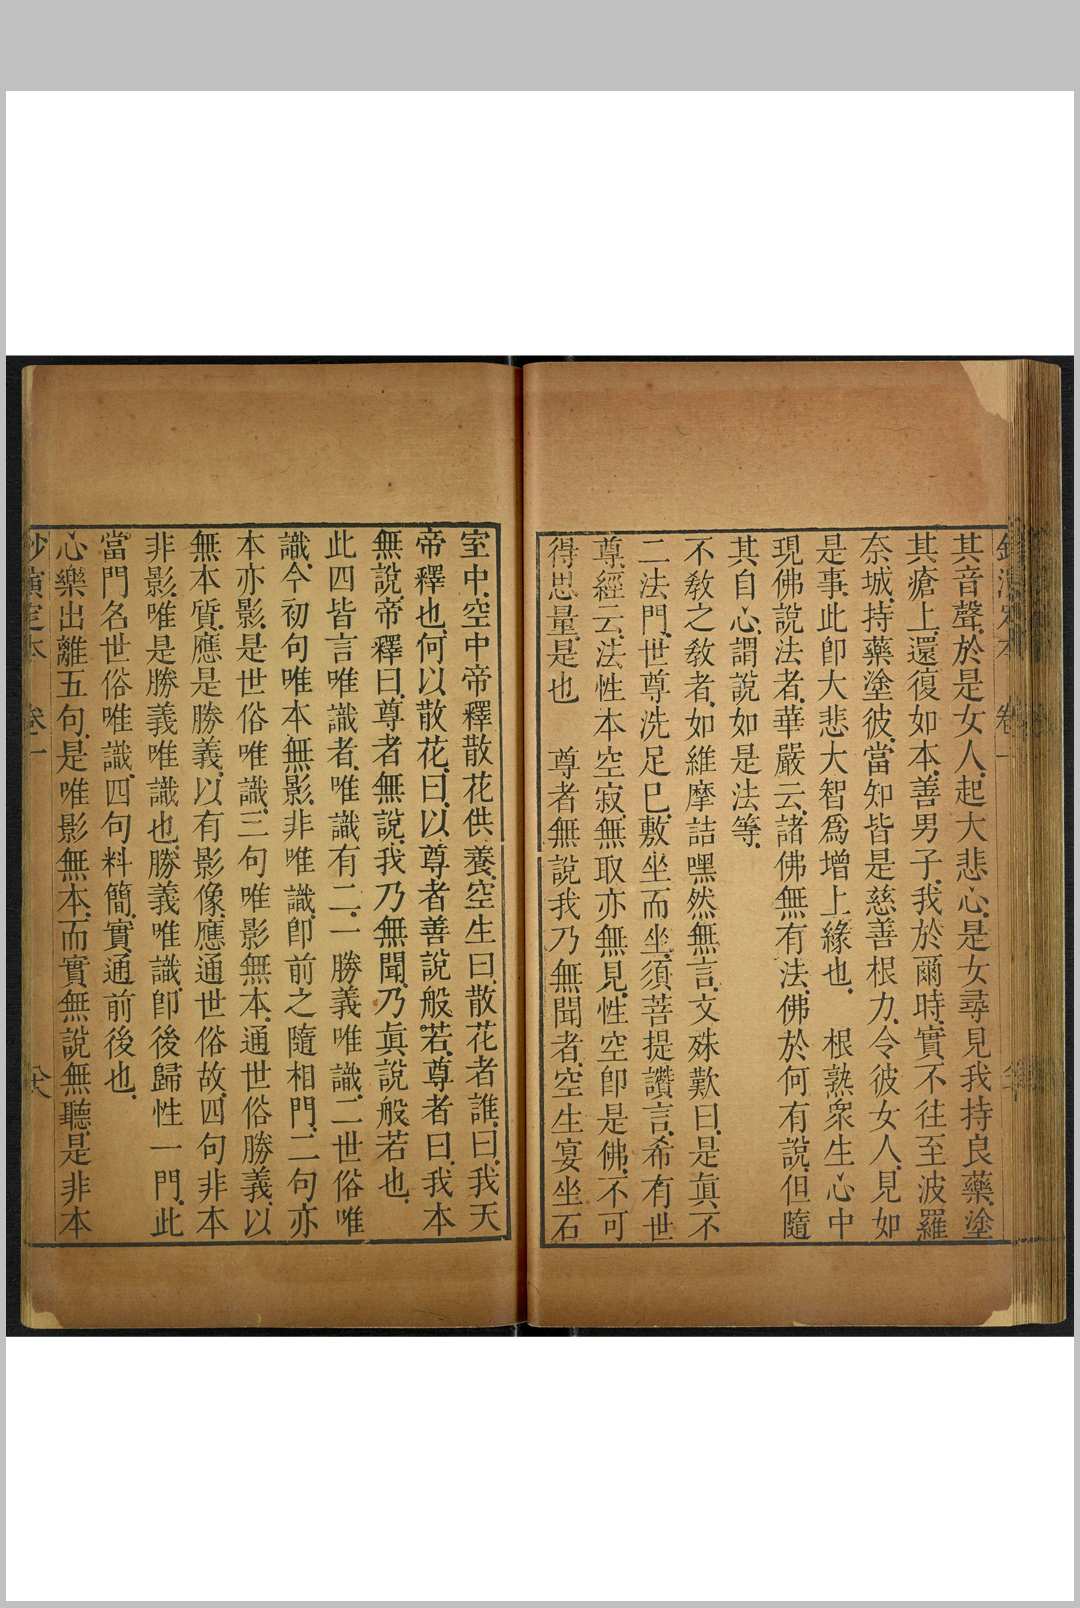 其音聲.於是女人.起大悲心.是女尋見我持良藥.塗
其瘡上.還復如本.善男子.我於爾時.實不往至波羅
奈城.持藥塗彼.當知皆是慈善根力.令彼女人.見如
是事.此即大悲大智爲增上緣也. 根熟衆生心中
現佛說法者.華嚴云.諸佛無有法.佛於何有說.但隨
其自心.謂說如是法等.
不敎之敎者.如維摩詰嘿然無言.文殊歎曰.是眞不
二法門.世尊洗足已.敷坐而坐.須菩提讚言.希有世
尊經云.法性本空寂.無取亦無見.性空即是佛.不可
得思量.是也 尊者無說我乃無聞者.空生宴坐石
室中.空中帝釋散花供養.空生曰.散花者誰.曰.我天
帝釋也.何以散花.曰.以尊者善說般若.尊者曰.我本
無說.帝釋曰.尊者無說.我乃無聞.乃眞說般若也.
此四皆言唯識者.唯識有二.一勝義唯識.二世俗唯
識.今初句唯本無影.非唯識.即前之隨相門.二句.亦
本亦影.是世俗唯識.三句唯影無本.通世俗勝義.以
無本質.應是勝義.以有影像.應通世俗故.四句非本
非影.唯是勝義唯識也.勝義唯識.即後歸性一門.此
當門名世俗唯識.四句料簡.實通前後也.
心樂出離五句.是唯影無本.而實無說無聽.是非本
鈔演定本 卷一 六